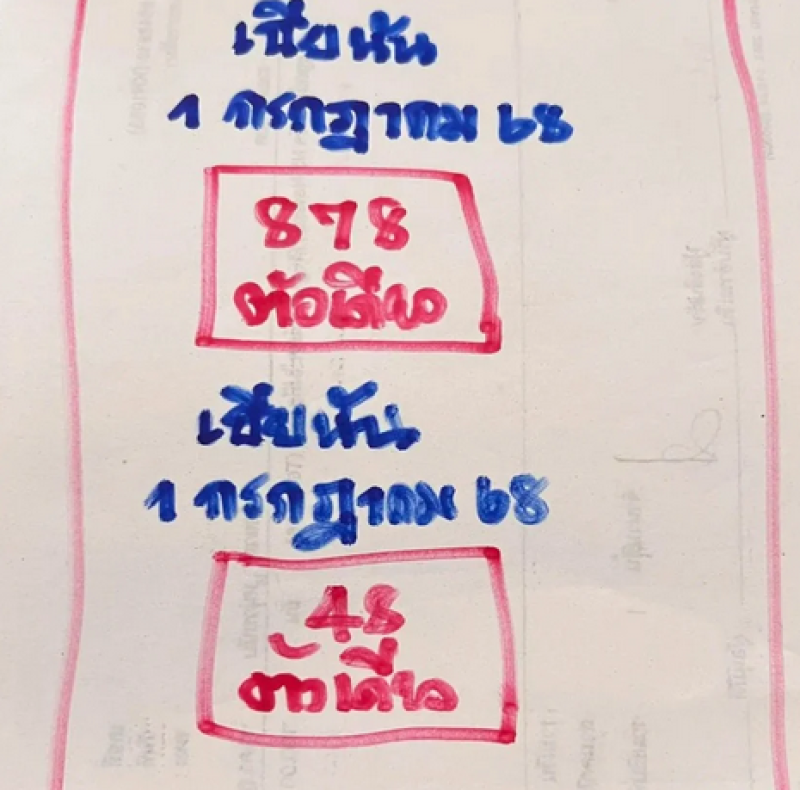 เซียนัน
1 กรกฎาคม 68
878
ตัอเดียว
เซียนัน
1 กรกฎาคม 68
48
ตัวเดียว